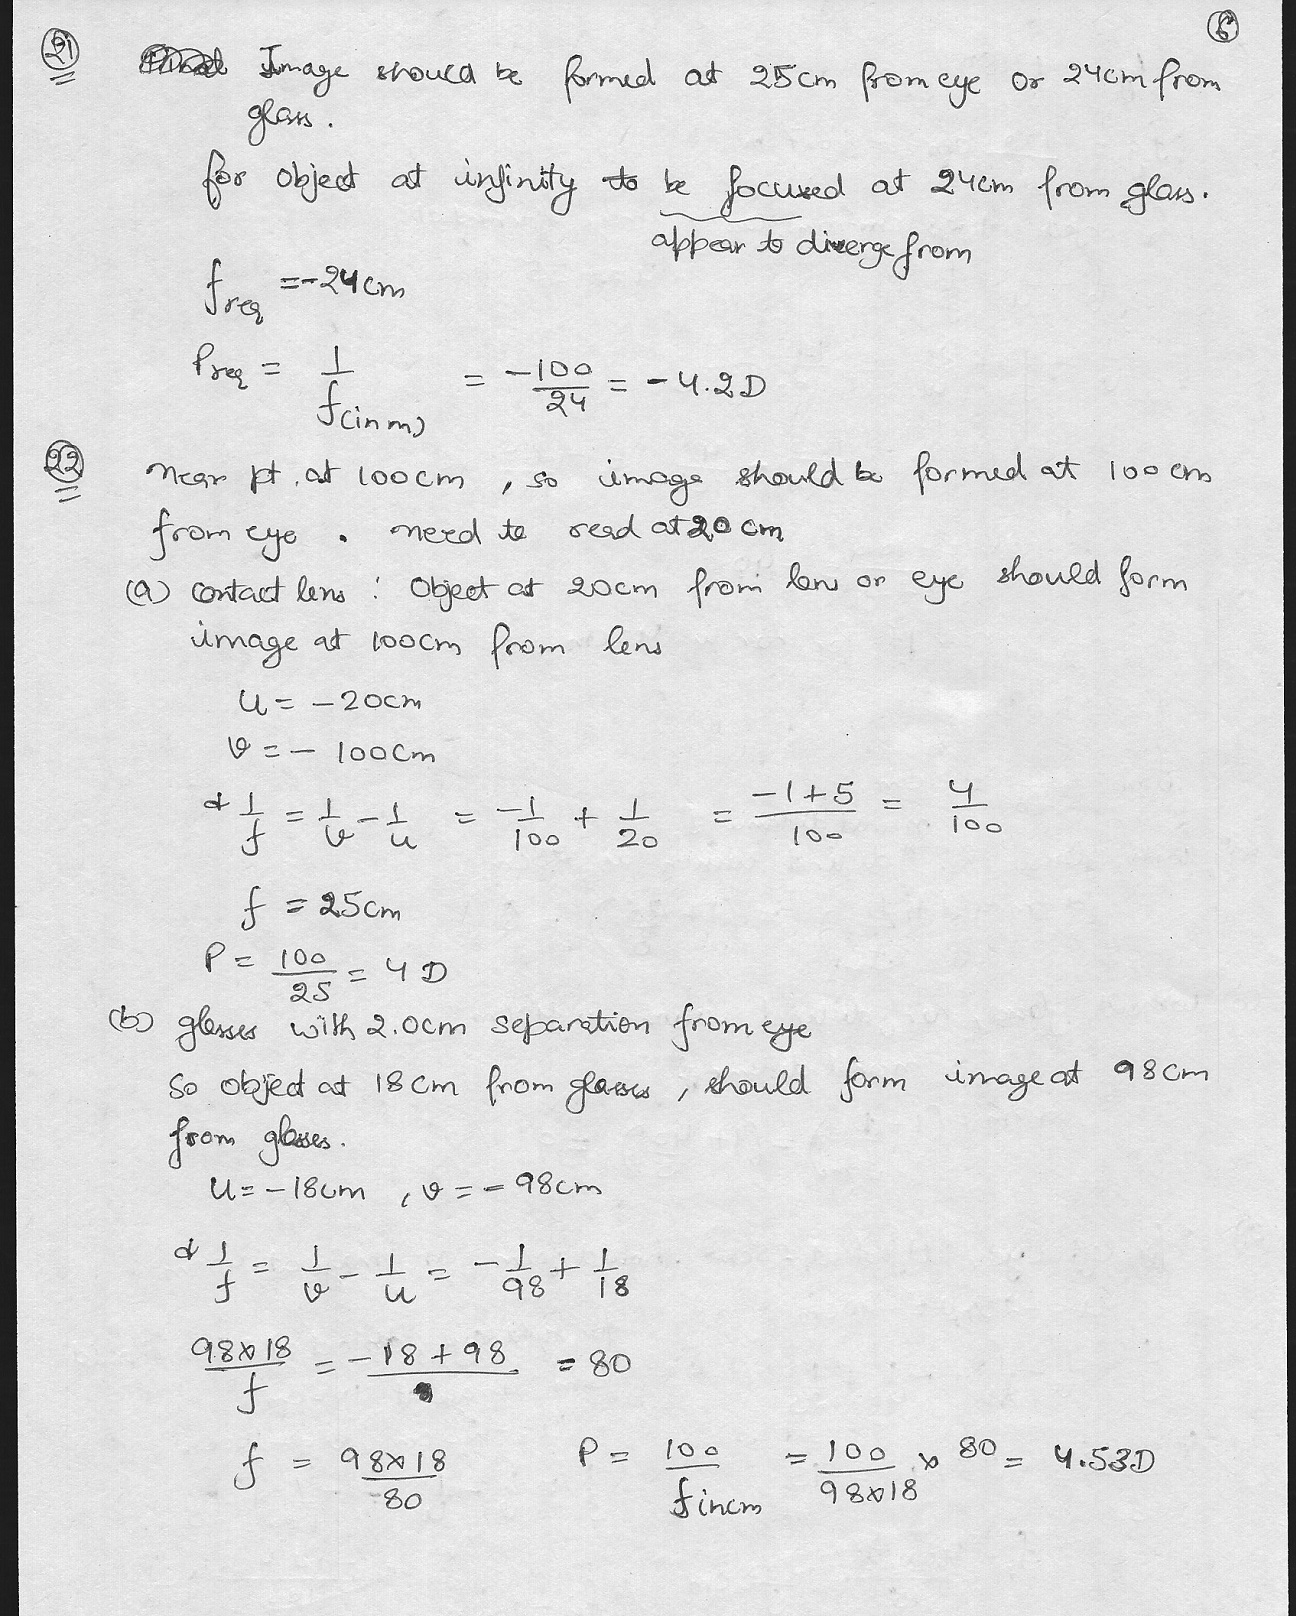 6
21 Image should be formed at 25cm from eye or 24cm from
glass.
for object at infinity to be focused at 24cm from glass.
appear to diverge from
f req = -24cm
Preq = 1/f(in m) = -100/24 = -4.2D
22 Near pt. at 100cm, so image should be formed at 100cm
from eye. need to read at 20cm
(a) contact lens : Object at 20cm from lens or eye should form
image at 100cm from lens
u = -20cm
v = - 100cm
1/f = 1/v - 1/u = -1/100 + 1/20 = -1+5/100 = 4/100
f = 25cm
P = 100/25 = 4D
(b) glasses with 2.0cm separation from eye
So object at 18cm from glasses, should form image at 98cm
from glasses.
u = -18cm, v = -98cm
1/f = 1/v - 1/u = -1/98 + 1/18
98×18/f = -18+98 = 80
f = 98×18/80 P = 100/f in cm = 100/98×18 × 80 = 4.53D